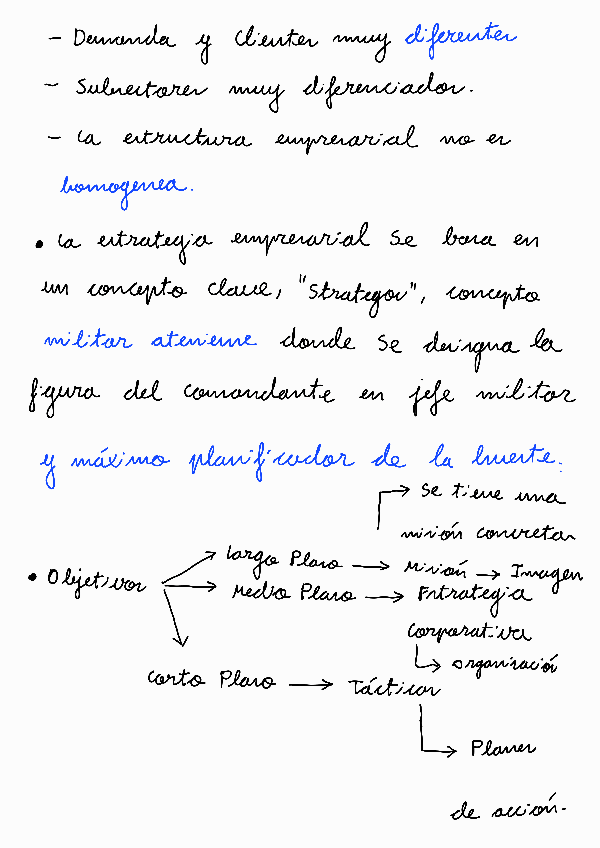 - Demanda y Clientes muy diferentes
- Subsectores muy diferenciados.
- La estructura empresarial no es
homogenea.
• La estrategia empresarial se basa en
un concepto clave, "Strategos", concepto
militar ateniense donde se designa la
figura del comandante en jefe militar
y máximo planificador de la huerte.
Se tiene una
misión concreta
• Objetivos → Largo Plazo → Misión → Imagen
→ Medio Plazo → Estrategia
Corporativa
↳ organización
→ Corto Plazo → Tácticas
↳ Planes
de acción.